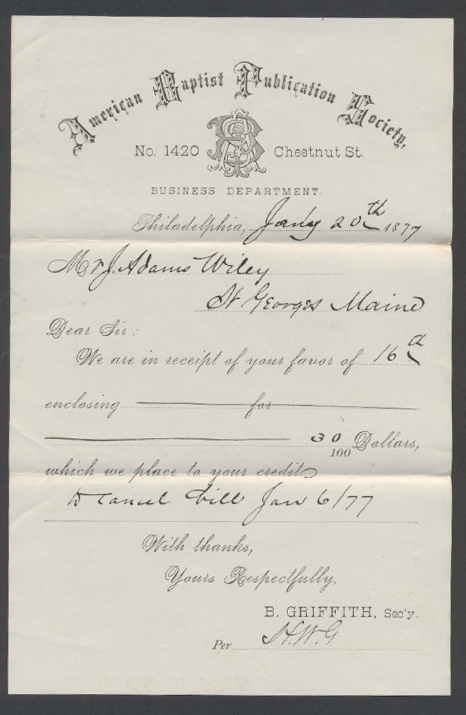 American Baptist Publication Society,
No. 1420 ABPS Chestnut St.
BUSINESS DEPARTMENT.
Philadelphia, Jany 20th 1877
Mr J. Adams Wiley
St Georges Maine
Dear Sir:
We are in receipt of your favor of 16th
enclosing for
30/100 Dollars,
which we place to your credit
to cancel bill Jan 6/77
With thanks,
Yours Respectfully,
B. GRIFFITH, Sec'y.
Per H.W.G